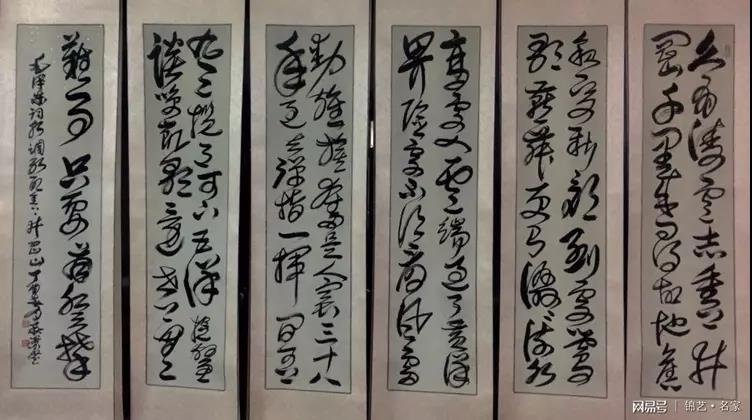 久有凌云志重上井
冈千里来寻故地旧
貌变新颜到处莺
歌燕舞更有潺潺流水
高路入云端过了黄洋
界险处不须看风雷
动旌旗奋是人寰三十八
年过去弹指一挥间可上
九天揽月可下五洋捉鳖
谈笑凯歌还世上无
难事只要肯登攀
毛泽东词水调歌头重上井冈山丁酉
网易号 | 锦艺·名家